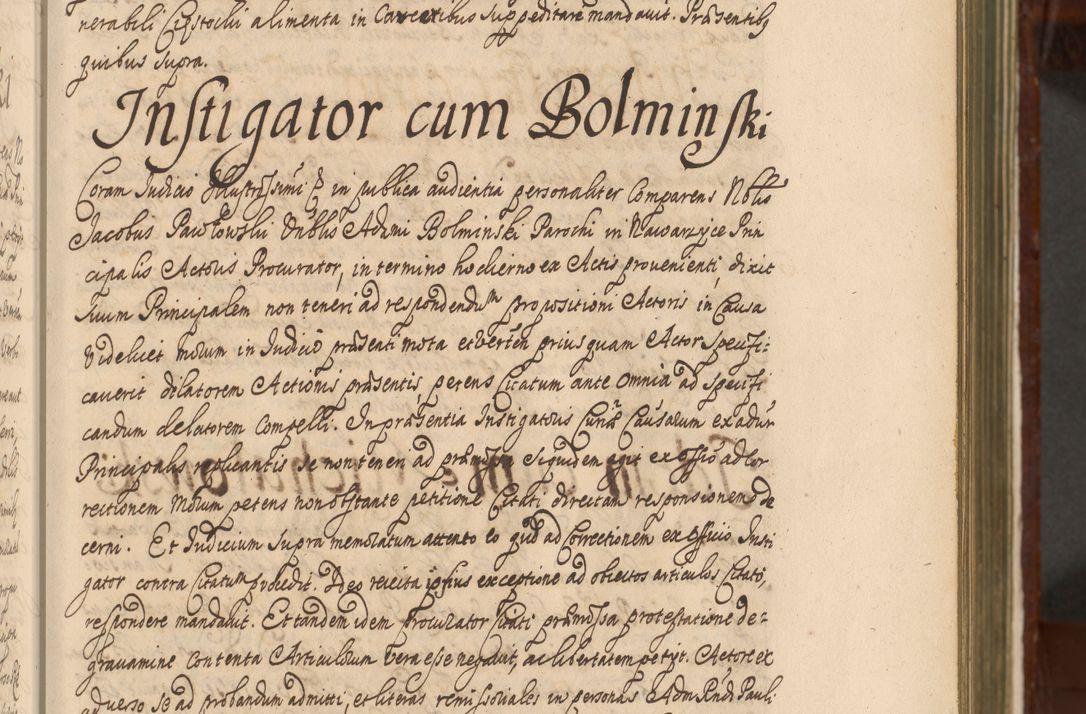 nerabili Cistochii alimenta in Carceribus Suppeditare mandavit. Præsentibq
quibus supra.
Instigator cum Bolminski
Coram Judicio Illustrissimi &c in publica audientia personaliter Comparens Nblis
Jacobus Pawłowski Vnblis Adami Bolminski Parochi in Nawarzyce Prin
cipalis Actoris Procurator, in termino hodierno ex Actis provenienti, dixit
suum Principalem non teneri ad respondendum propositioni Actoris in Causa
videlicet morum in Judicio præsenti mota et verten prius quam Actor Specifi:
caverit delatorem Actionis præsentis, petens Citatum ante omnia ad specifi
candum delatorem Compelli. In præsentia Instigatoris Curiæ Causarum ex adur
Principalis replicantis se non teneri ad præmissa siquidem agit ex officio ad Cor
rectionem Morum petens non obstante petitione Citati directam responsionem de
cerni. Et Judicium supra memoratum attento eo quod ad Correctionem ex officio Insti
gator contra Citatum procedit. Ideo reiecta ipsius exceptione ad obiectos articulos Citato,
respondere mandavit. Et tandem idem Procurator Citati præmissa protestatione de:
gravamine Contenta Articulorum vera esse negavit, ac libertatem petyt. Actore ex
adverso se ad probandum admitti, et literas remissoriales in personas Adm Rndi Pauli